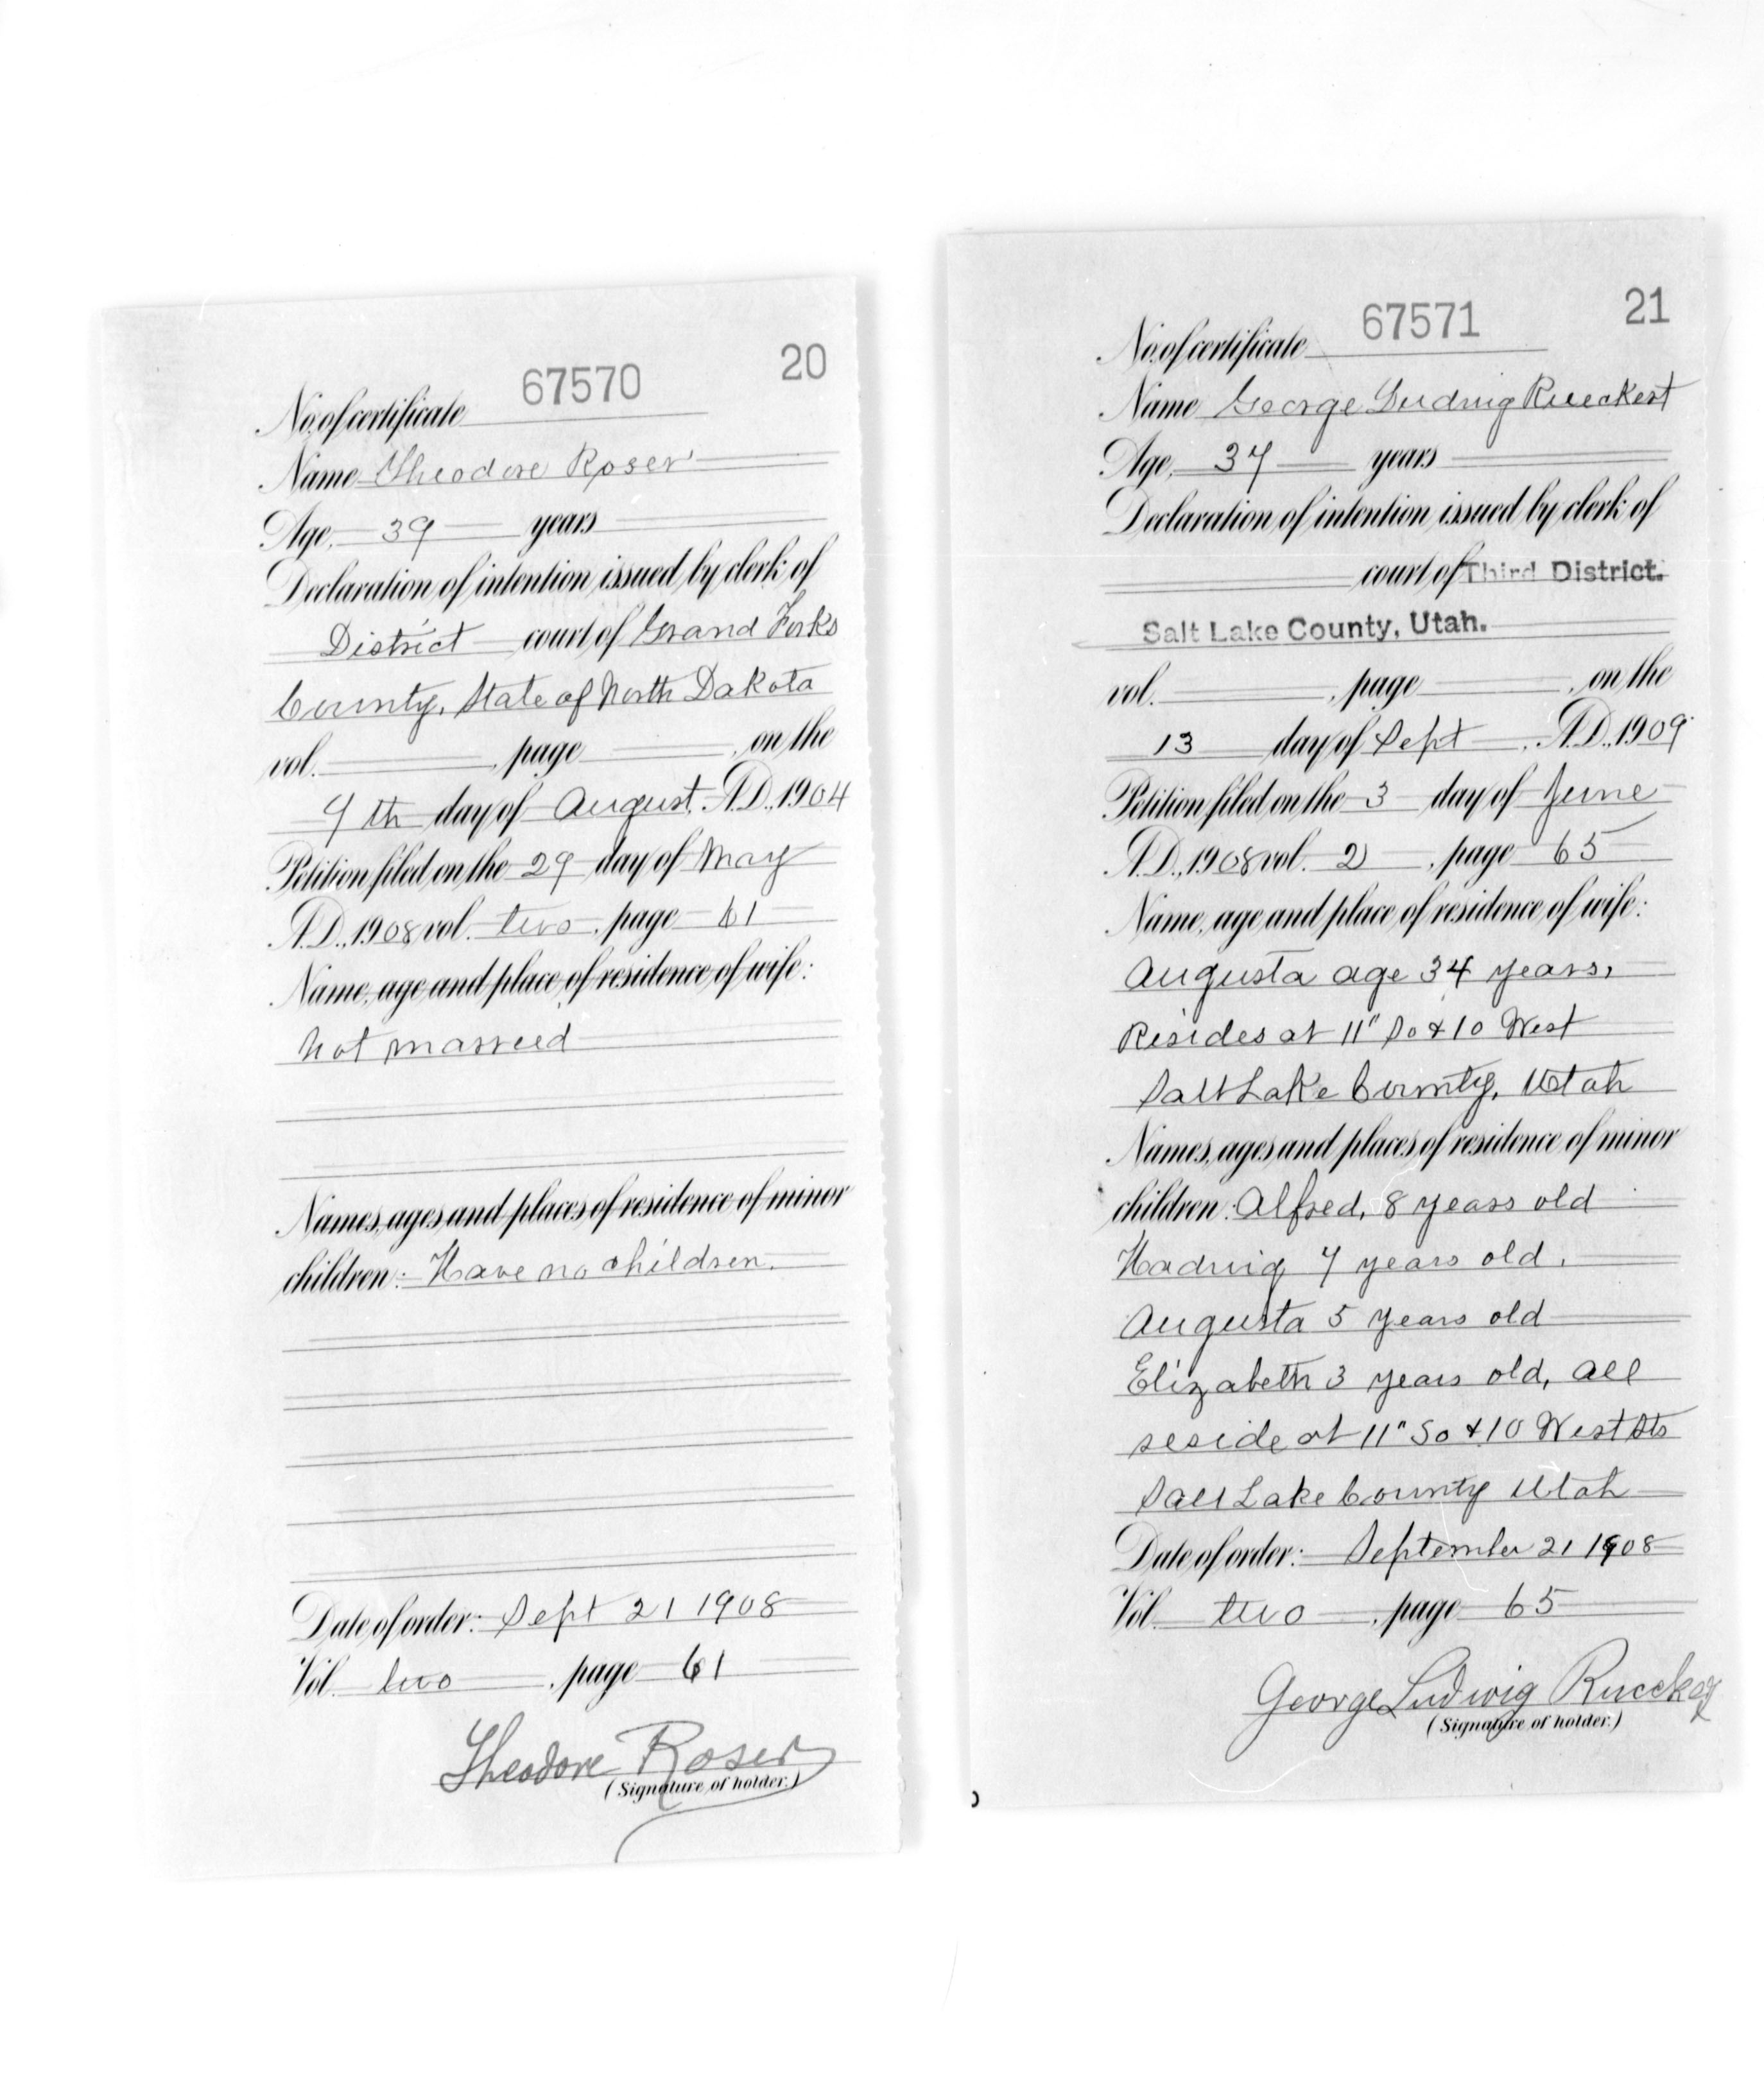 20
No. of certificate 67570
Name Theodore Roser
Age, 39 years
Declaration of intention issued by clerk of
District court of Grand Forks
County, State of North Dakota
vol. , page , on the
9 th day of August, A.D., 1904
Petition filed on the 29 day of May
A.D., 1908 vol. two, page 61
Name, age and place of residence of wife:
Not married
Names, ages and places of residence of minor
children: Have no children.
Date of order: Sept 21 1908
Vol. two, page 61
Theodore Roser
(Signature of holder.)
21
No. of certificate 67571
Name George Ludwig Rueckert
Age, 37 years
Declaration of intention issued by clerk of
court of Third District.
Salt Lake County, Utah.
vol. , page , on the
13 day of Sept, A.D., 1909
Petition filed on the 3 day of June
A.D., 1908 vol. 2, page 65
Name, age and place of residence of wife:
Augusta age 34 years,
Resides at 11" So & 10 West
Salt Lake County, Utah
Names, ages and places of residence of minor
children: Alfred, 8 years old
Hadwig 7 years old.
Augusta 5 years old
Elizabeth 3 years old, all
reside at 11" So & 10 West Sts
Salt Lake County Utah
Date of order: September 21 1908
Vol. two, page 65
George Ludwig Rueckert
(Signature of holder.)